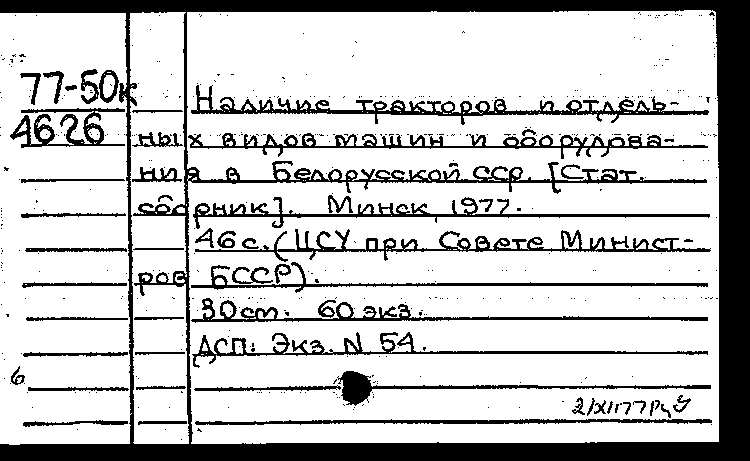 77-50к
4626
Наличие тракторов и отдель-
ных видов машин и оборудова-
ния в Белорусской сср. [Стат.
сборник]. Минск, 1977.
46 с. (ЦСУ при Совете Минист-
ров БССР).
30 см. 60 экз.
ДСП. Экз. N 54.
6
2/XI77